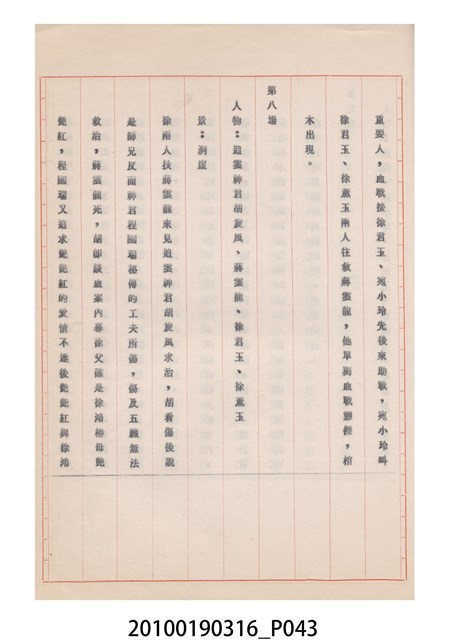 重要人，血戰接徐君玉、宛小玲先後來助戰，宛小玲叫
徐君玉、徐薰玉兩人往救蔣雲龍，他單獨血戰羣傑，棺
木出現。
第八場
人物：追雲神君胡旋風、蔣雲龍、徐君玉、徐薰玉
景：洞崖
徐兩人扶蔣雲龍來見追雲神君胡旋風求治，胡看傷後說
是師兄反面神君程國瑞秘傳的工夫所傷，傷及五臟無法
救治，蔣雲龍死，胡卽談血案內幕徐父確是徐鴻椿母艷
艷紅，程國瑞又追求艷艷紅的愛情不遂後艷艷紅與徐鴻
20100190316_P043